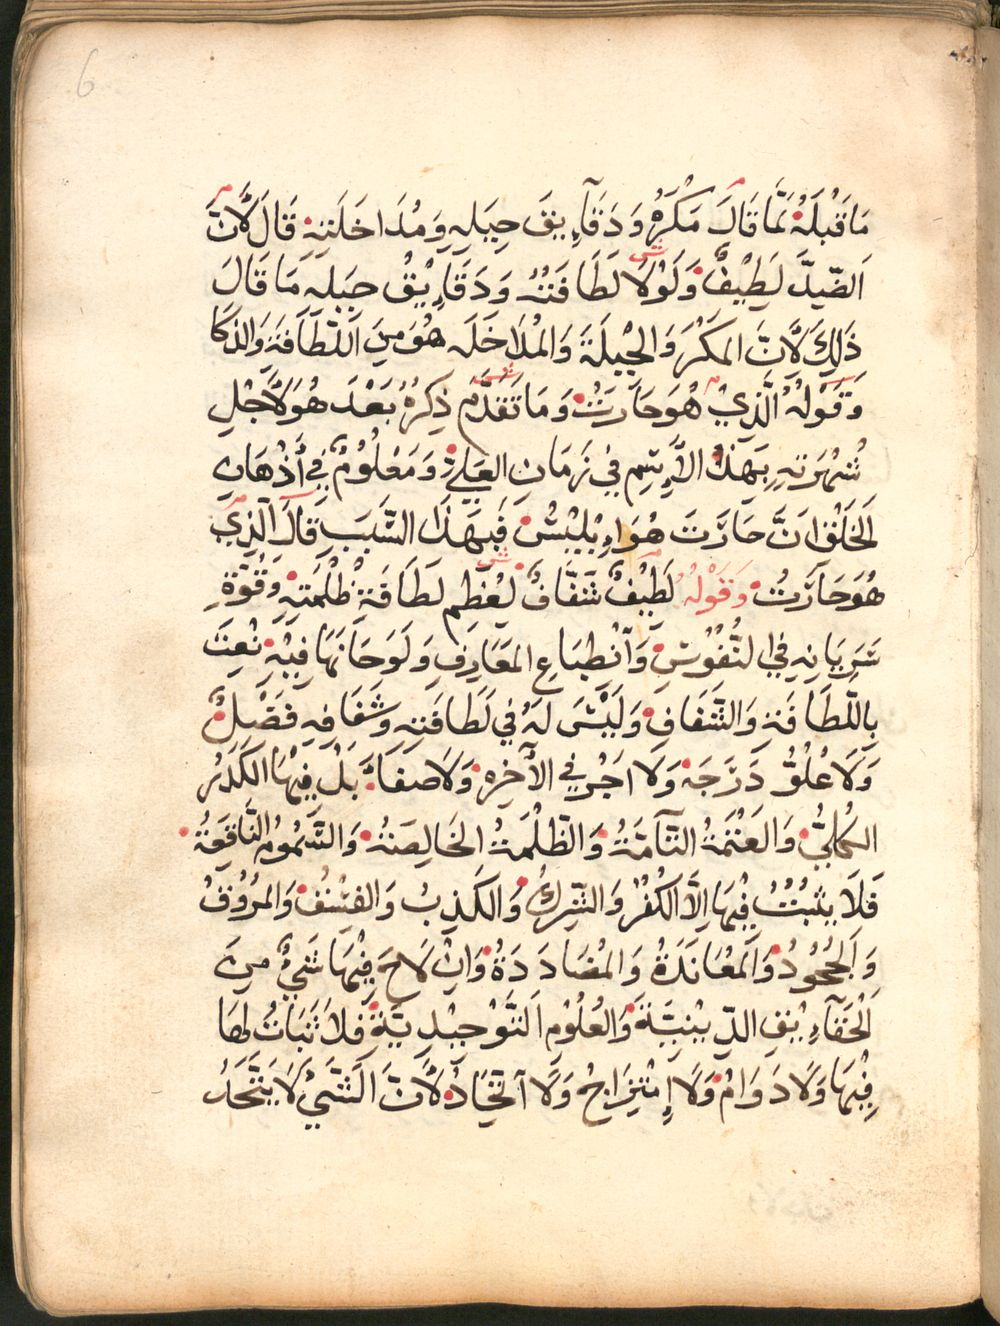 6
مَا قَبْلَهُ نَمَّا قَالَ مَكْرُهُ وَدَقَآءِيقَ حِيَلِهِ وَمُدَاخَلَتِهِ قَالَ لَأَنَّ
اَلضِّدَّ لَطِيْفٌ وَلَوْلَا لَطَافَتُهُ وَدَقَاءِيْقُ حِيَلِهِ مَا قَالَ
ذَلِكَ لَأَنَّ المَكْرَ وَالحِيْلَةَ وَالمُدَاخَلَه هُوَ مِنَ اللَّطَافَةِ وَالذَكَا
وَقَوْلُهُ الَّذِيْ هُوَ حَارَتُ وَمَا تَقَدَّم ذِكْرُهُ بَعْدَ هُوَ لَأَجْلِ
شُهْرَتِهِ بِهَذَا الأِسِم فِي زَمَانِ العَلِيِّ وَمَعْلُومٌ فِي أَذْهَانِ
الخَلْقِ انَّ حَارَتَ هُوَ اِبْلِيْسُ فَبِهَذَا السَّبَبَ قَالَ الَّذِي
هُوَ حَارَتُ وَقَوْلُهُ لَطِيْفٌ شَفَّافٌ لِعُظمِ لَطَافَةِ ظُلْمَتِهِ وَقُوَّةِ
سَرِيَانِهِ فِي النُّفُوْسِ وَآنْطِبَاعِ المَعَارِفِ وَلَوَحَانَهَا فِيْهِ نُعِتَ
بِاللَّطَافَةِ وَالشَّفَافِ وَلَيْسَ لَهُ فِي لَطَافَتِهِ وَشَفَافِهِ فَضْلٌ
وَلَا عُلُوُّ دَرَجَه وَلَا اجْرٌ فِي الآخِرهِ وَلَا صفَاءٌ بَلْ فِيْهَا الكَدَرُ
الكُلِيُّ وَالعَتْمَةُ التَآمَّةُ وَالظُّلْمَةُ الخَالِصَةُ وَالسُّمُومُ النَّاقِعَةُ
فَلَا يثبُتُ فِيْهَا اِلَّا الكُفْرُ وَالشِّركُ وَالكَذِبُ وَالفِسْقُ وَالمُرُوْقُ
وَالجُحُودُ وَالمُعَانَدَةُ وَالمُضَادَدَةُ وَاِنْ لَاحَ فِيْهَا شَيْءٌ مِنَ
اَلْحَقَآءِيْقِ الدِّيْنِيَّةِ وَالعُلُوْمِ اَلتَّوْحِيْدِيَّةِ فَلَا ثَبَاتُ لهَا
فِيْهَا وَلَا دَوَامٌ وَلَا إِمْتِزَاجٌ وَلَا آتِّحَادٌ لَأَنَّ الَشَّيْ لَا يَتَّحَدُ